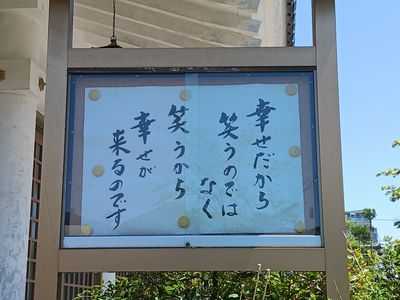 幸せだから
笑うのでは
なく
笑うから
幸せが
来るのです